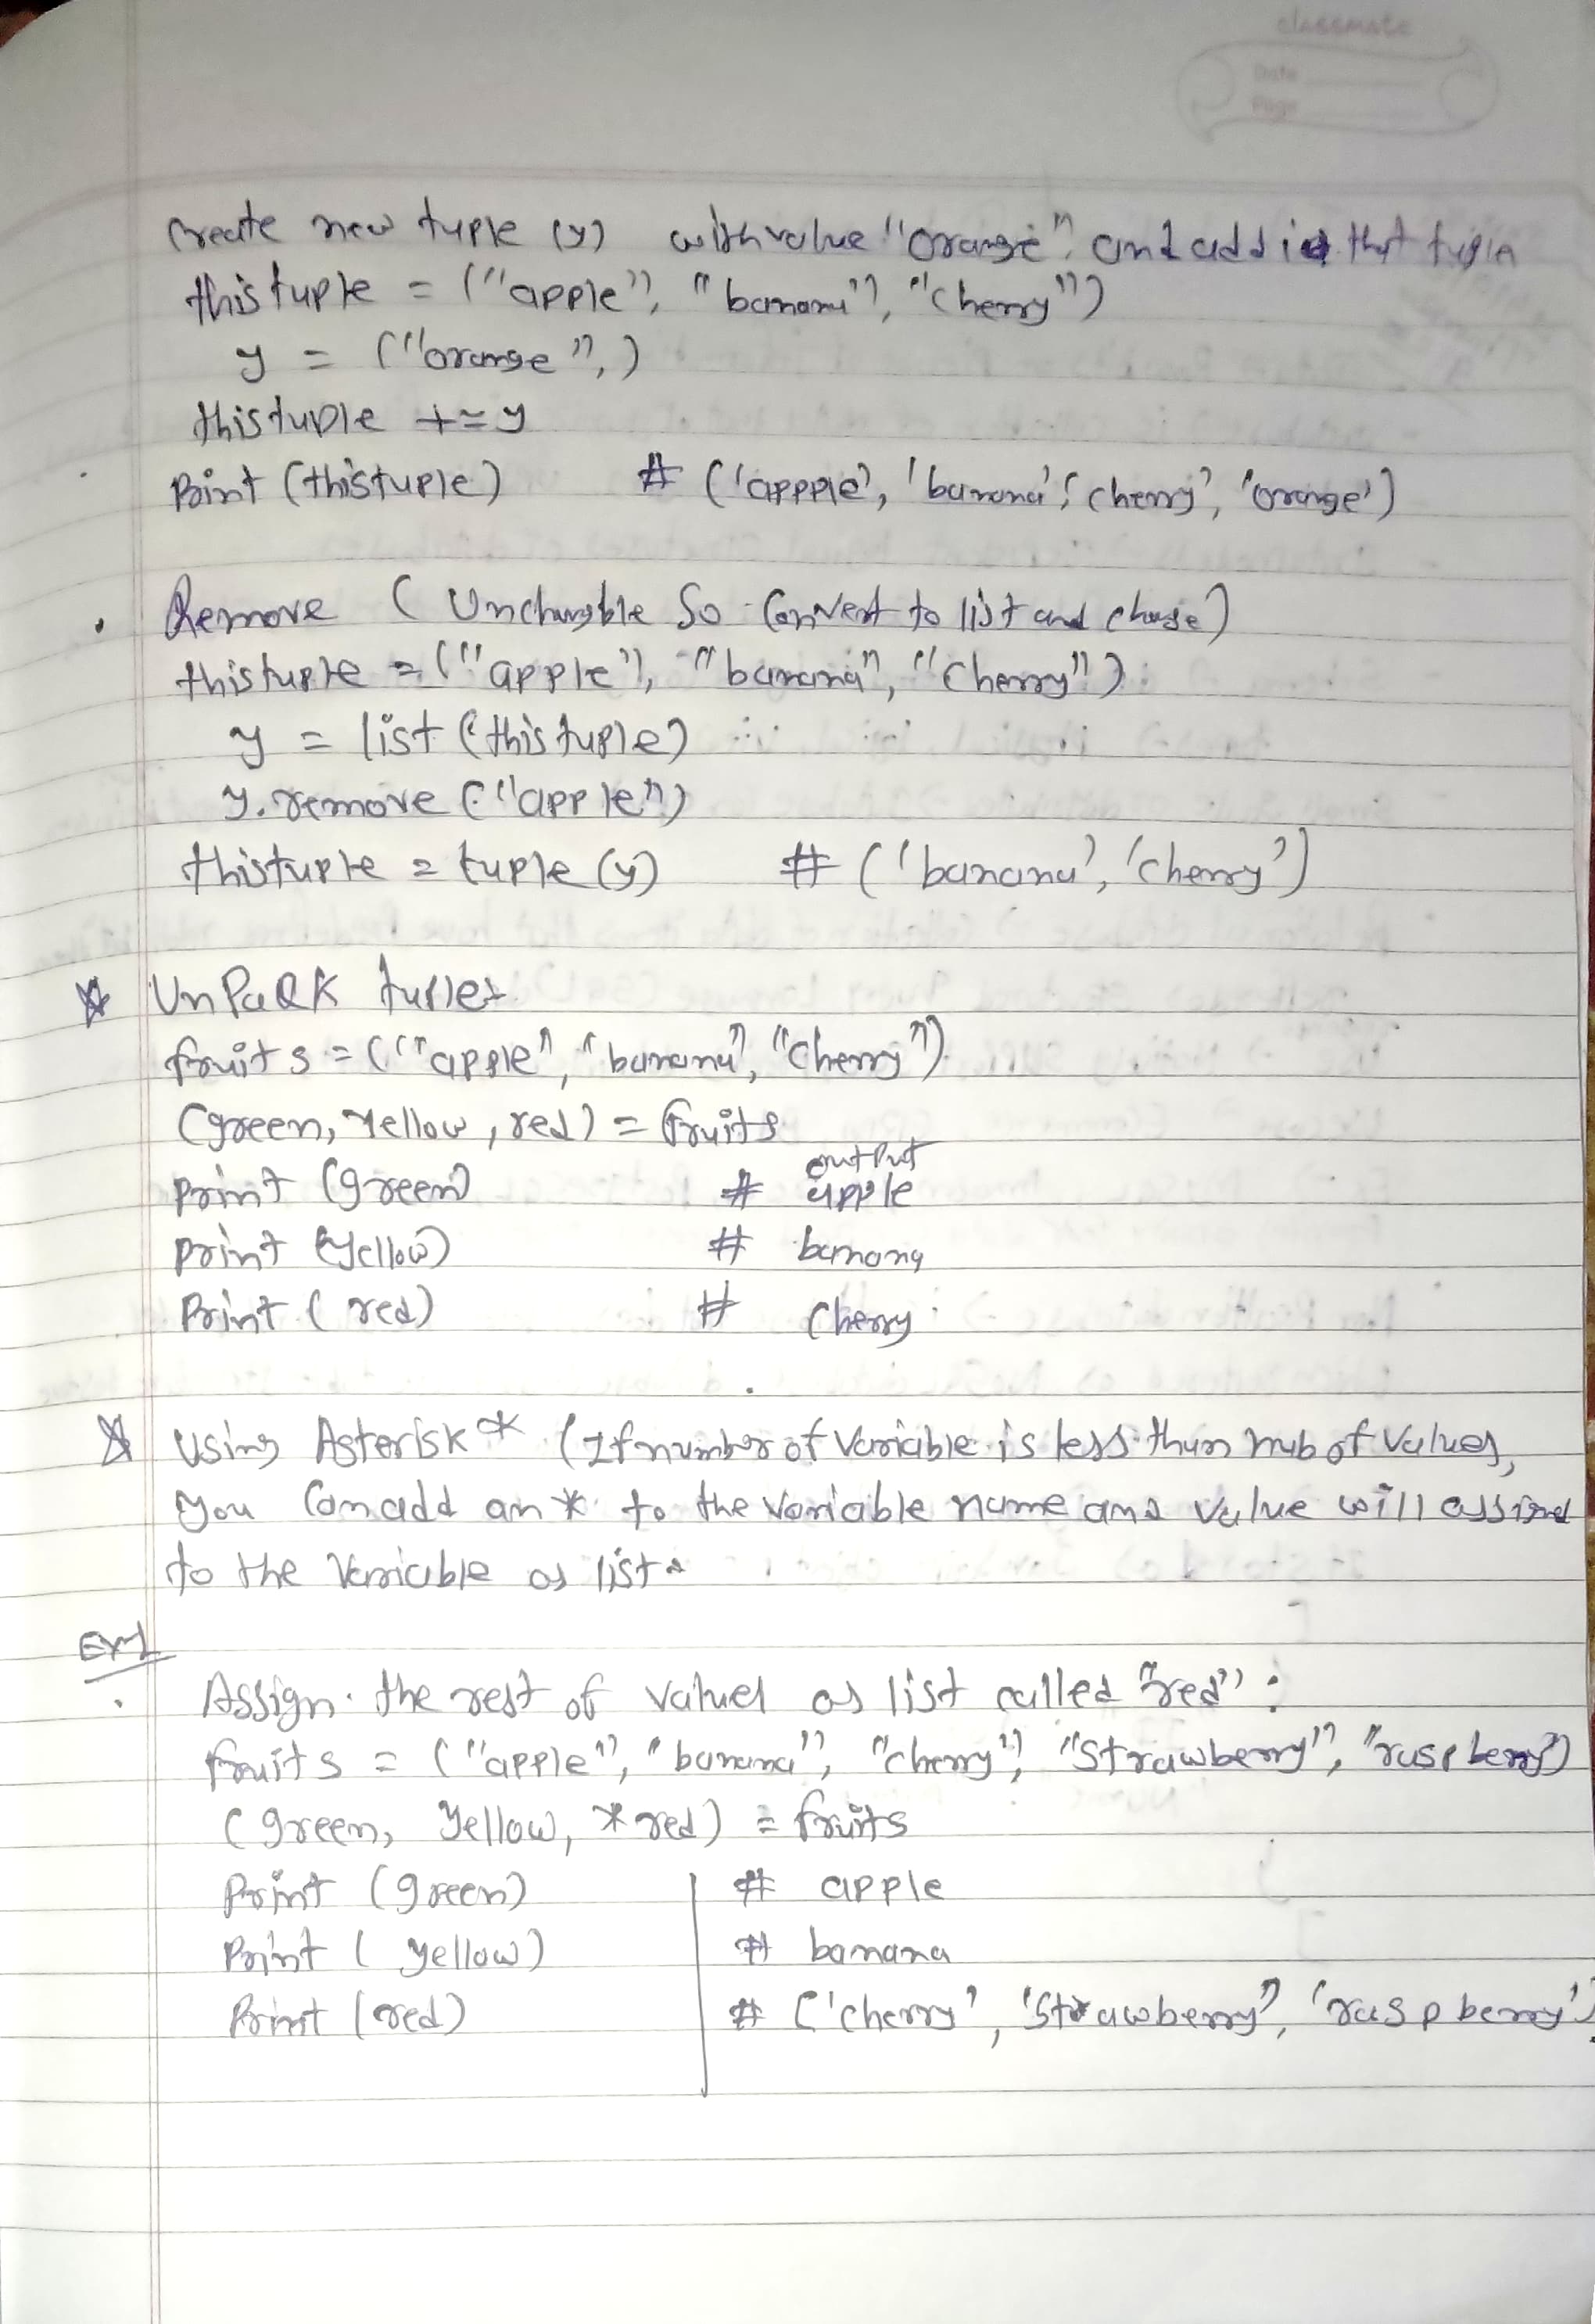 classmate
Date
Page
Create new tuple (y) with value "orange", and add it that tuple
thistuple = ("apple", "banana", "cherry")
y = ("orange",)
thistuple += y
Print (thistuple) # ('appple', 'banana', 'cherry', 'orange')
. Remove ( Unchangble So Convert to list and change)
thistuple = ("apple", "banana", "cherry")
y = list (thistuple)
y.remove ("apple")
thistuple = tuple (y) # ('banana', 'cherry')
☆ UnPack tuples
fruits = ("apple", "banana", "cherry")
(green, Yellow, red) = fruits
output
print (green) # apple
print (yellow) # banana
Print ( red) # Cherry
☆ Using Asterisk * (If number of Variable is less than nub of Values,
you Can add an * to the Variable name and value will assined
to the Variable as list.
Ex-1
. Assign the rest of values as list called "red" :
fruits = ("apple", "banana", "cherry", "Strawberry", "raspberry")
(green, Yellow, *red) = fruits
Print (green) # apple
Print ( yellow) # banana
Print (red) # ['cherry', 'Strawberry', 'raspberry']